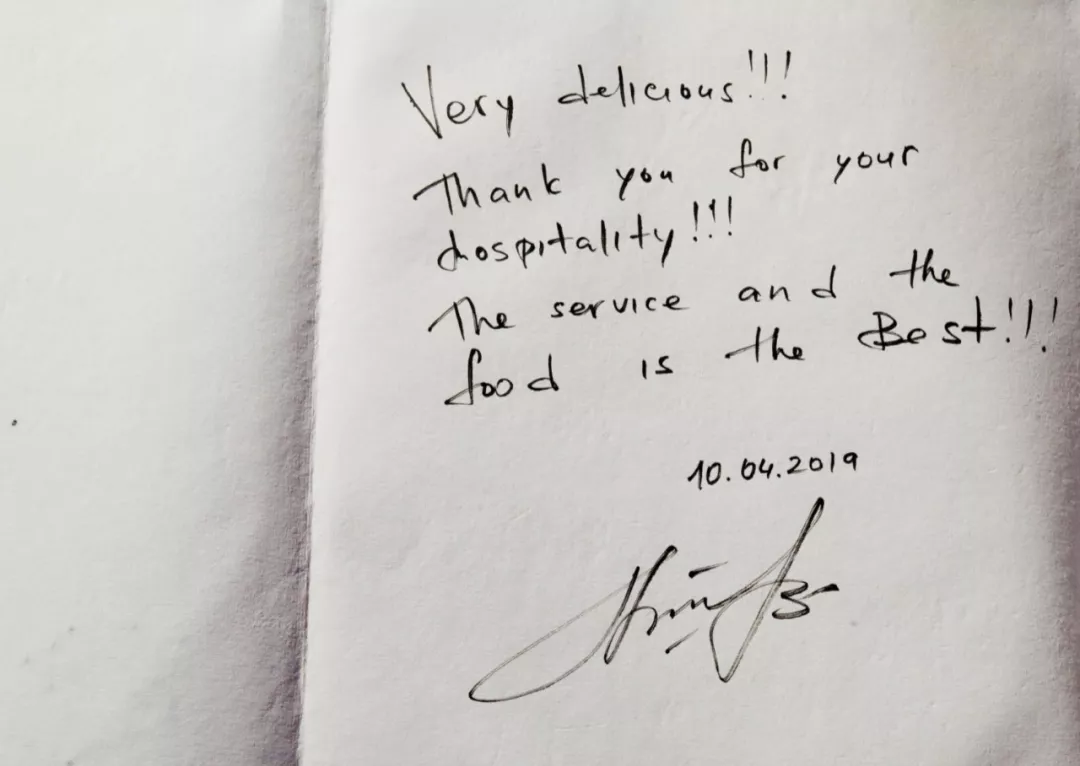 Very delicious!!!
Thank you for your
hospitality!!!
The service and the
food is the Best!!!
10.04.2019